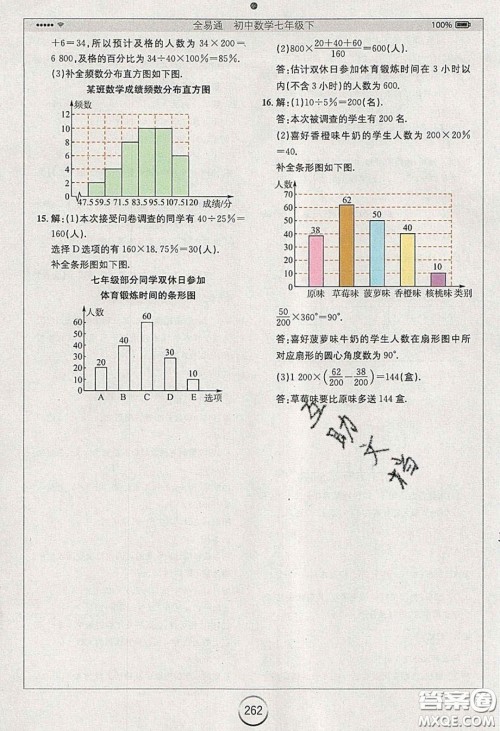 全易通 初中数学七年级下
100%
+6=34,所以预计及格的人数为 34×200=
6 800,及格的百分比为 34÷40×100%=85%.
(3)补全频数分布直方图如下图.
某班数学成绩频数分布直方图
频数
12
10
8
6
4
2
47.5 59.5 71.5 83.5 95.5 107.5 120 成绩/分
15.解:(1)本次接受问卷调查的同学有 40÷25%=
160(人).
选择 D 选项的有 160×18.75%=30(人).
补全条形图如下图.
七年级部分同学双休日参加
体育锻炼时间的条形图
人数
60
40
30
20
10
80
60
40
20
0
A B C D E 选项
(2)800×(20+40+60)/160=600(人).
答:估计双休日参加体育锻炼时间在 3 小时以
内(不含 3 小时)的人数为 600.
16.解:(1)10÷5%=200(名).
答:本次被调查的学生有 200 名.
(2)喜好香橙味牛奶的学生人数为 200×20%
=40.
补全条形图如下图.
人数
70
60
50
40
30
20
10
0
38
62
50
40
10
原味 草莓味 菠萝味 香橙味 核桃味 类别
50/200×360°=90°.
答:喜好菠萝味牛奶的学生人数在扇形图中所
对应扇形的圆心角度数为 90°.
(3)1 200×(62/200-38/200)=144(盒).
答:草莓味要比原味多送 144 盒.
互助文档
262
答案圈
MXQE.COM